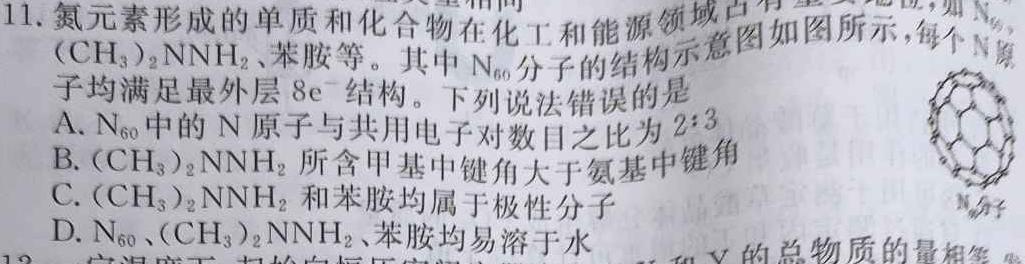 11. 氮元素形成的单质和化合物在化工和能源领域占有重要地位,如 N₆₀,
(CH₃)₂NNH₂、苯胺等。其中 N₆₀分子的结构示意图如图所示,每个 N 原
子均满足最外层 8e⁻结构。下列说法错误的是
A. N₆₀中的 N 原子与共用电子对数目之比为 2∶3
B. (CH₃)₂NNH₂ 所含甲基中键角大于氨基中键角
C. (CH₃)₂NNH₂ 和苯胺均属于极性分子
N₆₀分子
D. N₆₀、(CH₃)₂NNH₂、苯胺均易溶于水
Y 的总物质的量相等